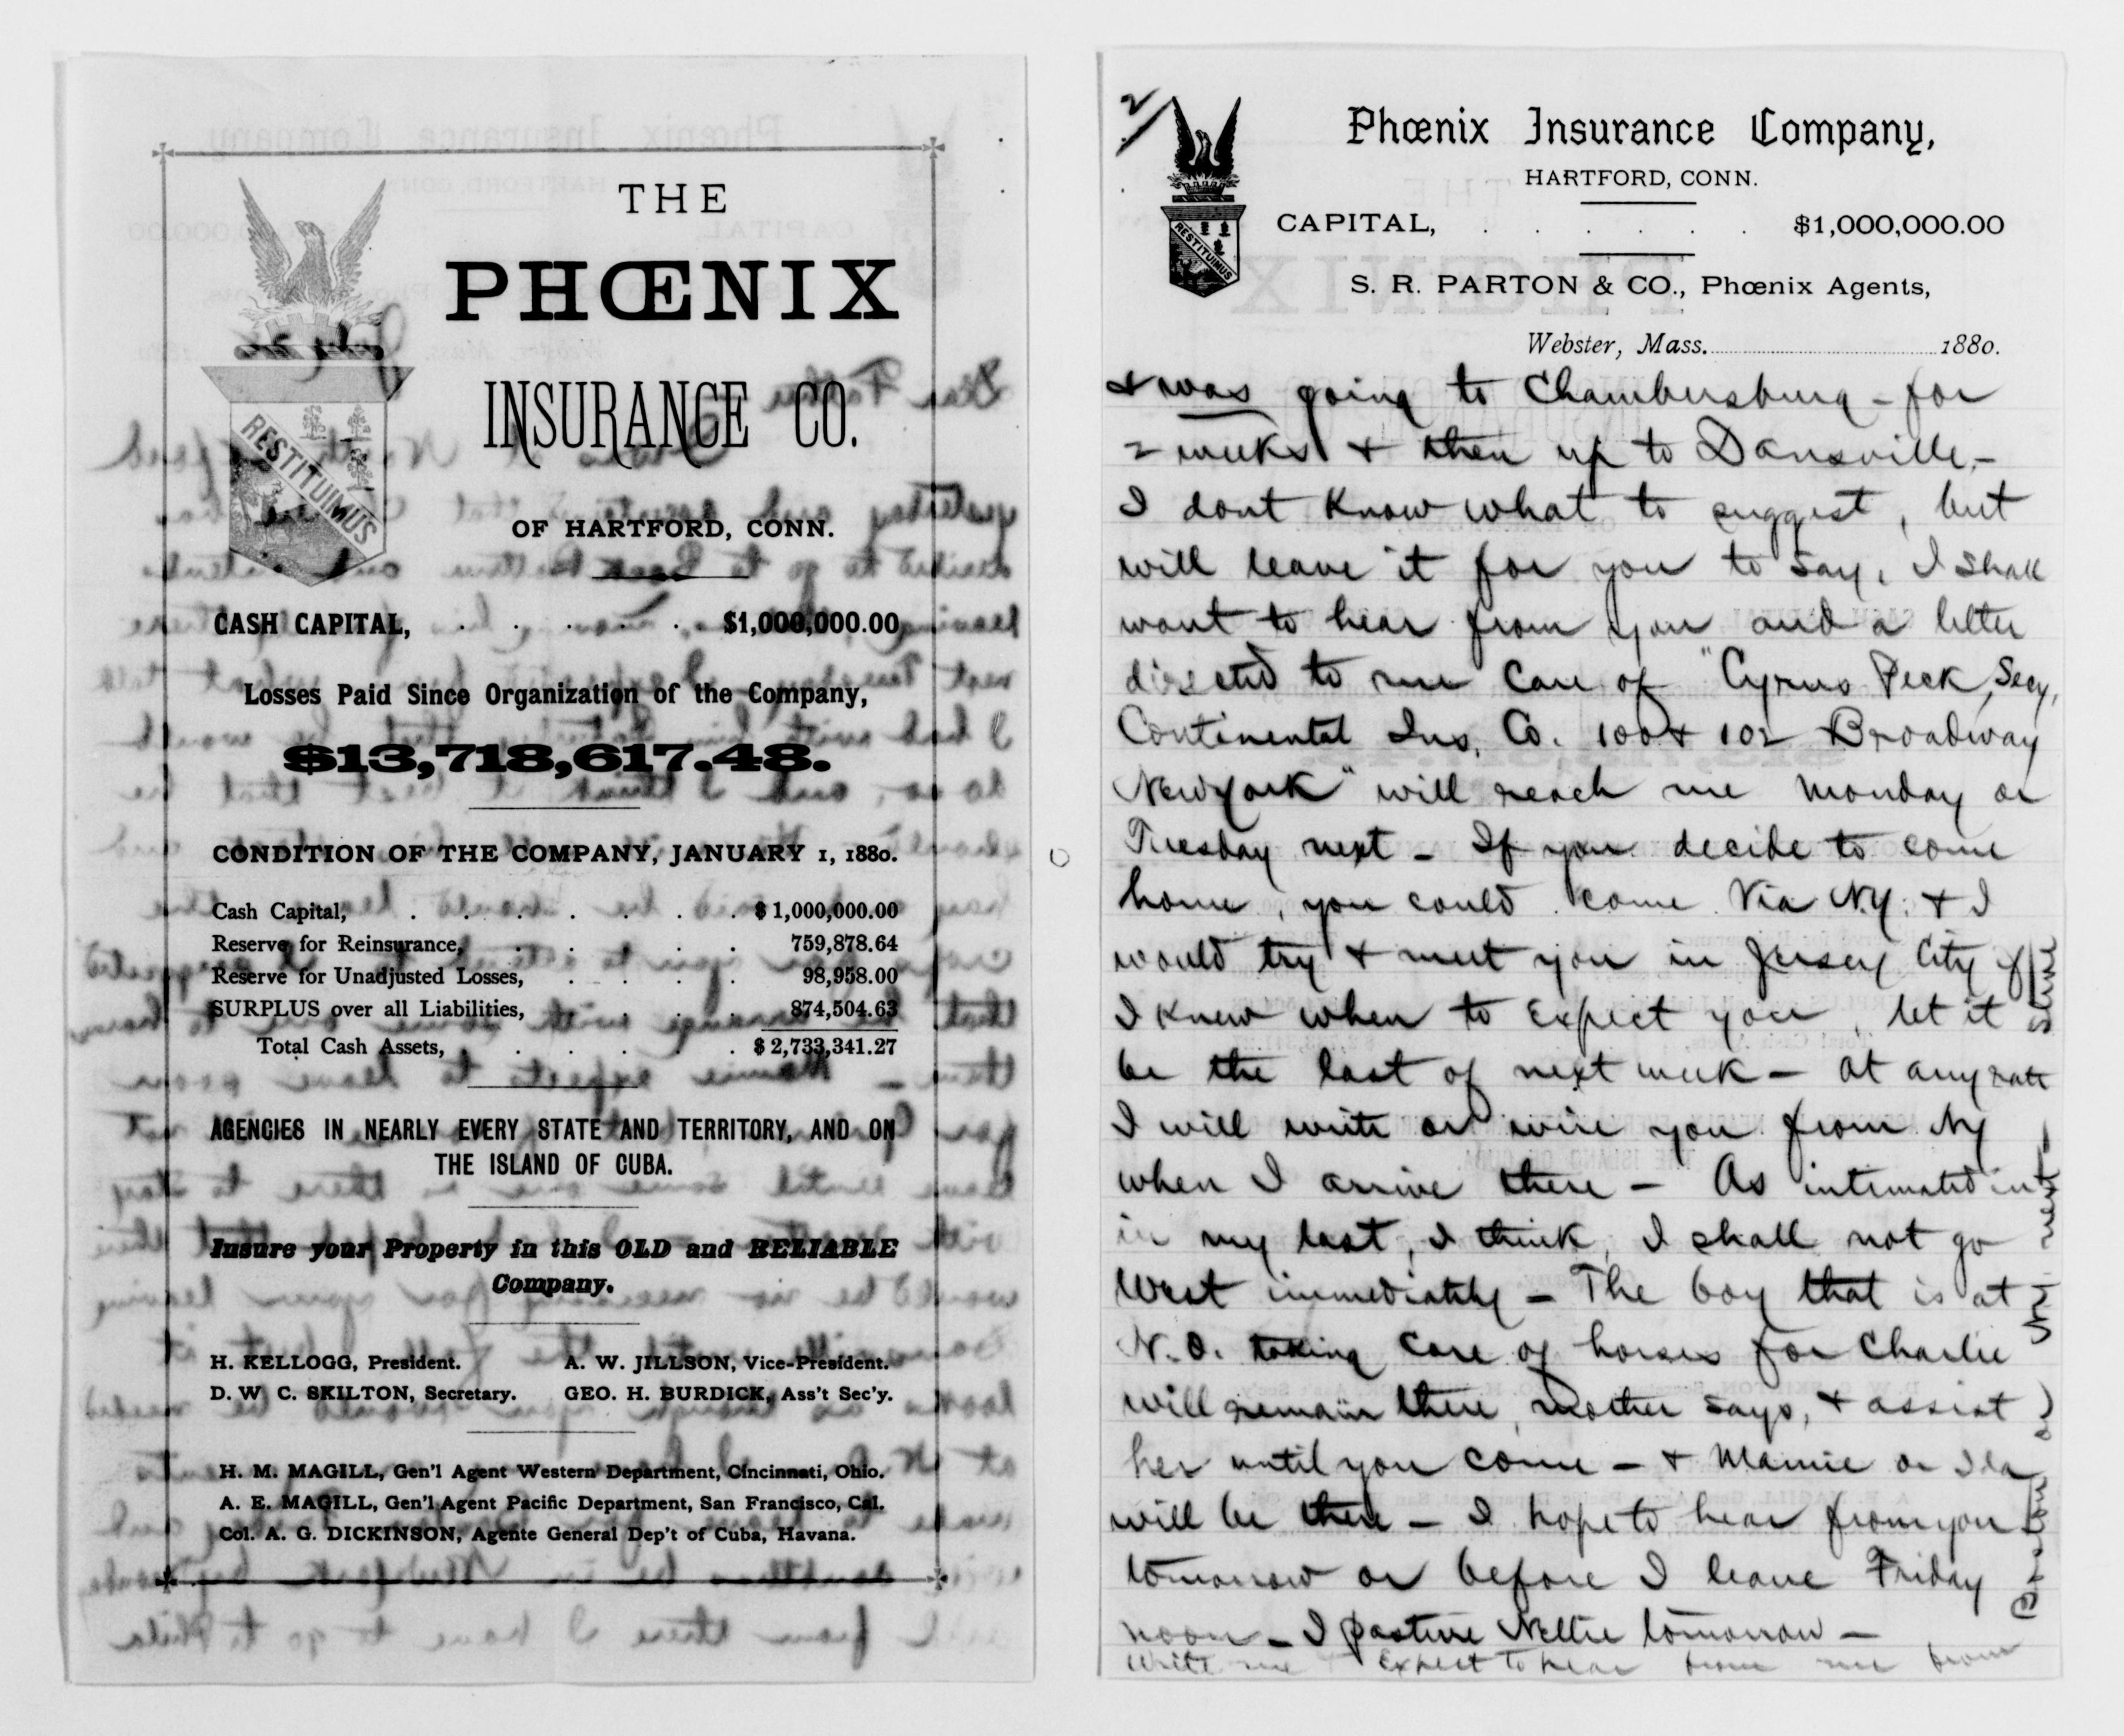 THE
PHŒNIX
INSURANCE CO.
OF HARTFORD, CONN.
RESTITUIMUS
CASH CAPITAL, . . . . . $1,000,000.00
Losses Paid Since Organization of the Company,
$13,718,617.48.
CONDITION OF THE COMPANY, JANUARY 1, 1880.
Cash Capital, . . . . . . . $ 1,000,000.00
Reserve for Reinsurance, . . . . . 759,878.64
Reserve for Unadjusted Losses, . . . . 98,958.00
SURPLUS over all Liabilities, . . . . 874,504.63
Total Cash Assets, . . . . . $ 2,733,341.27
AGENCIES IN NEARLY EVERY STATE AND TERRITORY, AND ON
THE ISLAND OF CUBA.
Insure your Property in this OLD and RELIABLE
Company.
H. KELLOGG, President. A. W. JILLSON, Vice-President.
D. W. C. SKILTON, Secretary. GEO. H. BURDICK, Ass't Sec'y.
H. M. MAGILL, Gen'l Agent Western Department, Cincinnati, Ohio.
A. E. MAGILL, Gen'l Agent Pacific Department, San Francisco, Cal.
Col. A. G. DICKINSON, Agente General Dep't of Cuba, Havana.
2/
Phœnix Insurance Company,
HARTFORD, CONN.
CAPITAL, . . . . . . $1,000,000.00
RESTITUIMUS
S. R. PARTON & CO., Phœnix Agents,
Webster, Mass. 1880.
& was going to Chambersburg - for
2 weeks & then up to Dansville.-
I dont Know what to suggest, but
will leave it for you to say, I shall
want to hear from you and a letter
directed to me Care of "Cyrus Peck, Secy,
Continental Ins. Co. 100 & 102 Broadway
New York" will reach me Monday or
Tuesday next - If you decide to come
home, you could come Via N.Y. & I
would try & meet you in Jersey City if
I knew when to Expect you, let it
be the last of next week - at any rate
I will write or wire you from NY
when I arrive there - As intimated in
in my last, I think, I shall not go
West immediately - The boy that is at
N.O. taking Care of horses for Charlie
will remain there, Mother says, & assist
her until you come - & Mamie or Ida
will be there - I hope to hear from you
tomorrow or before I leave Friday
noon - I pasture Nettie tomorrow -
Write me Expect to hear from me from